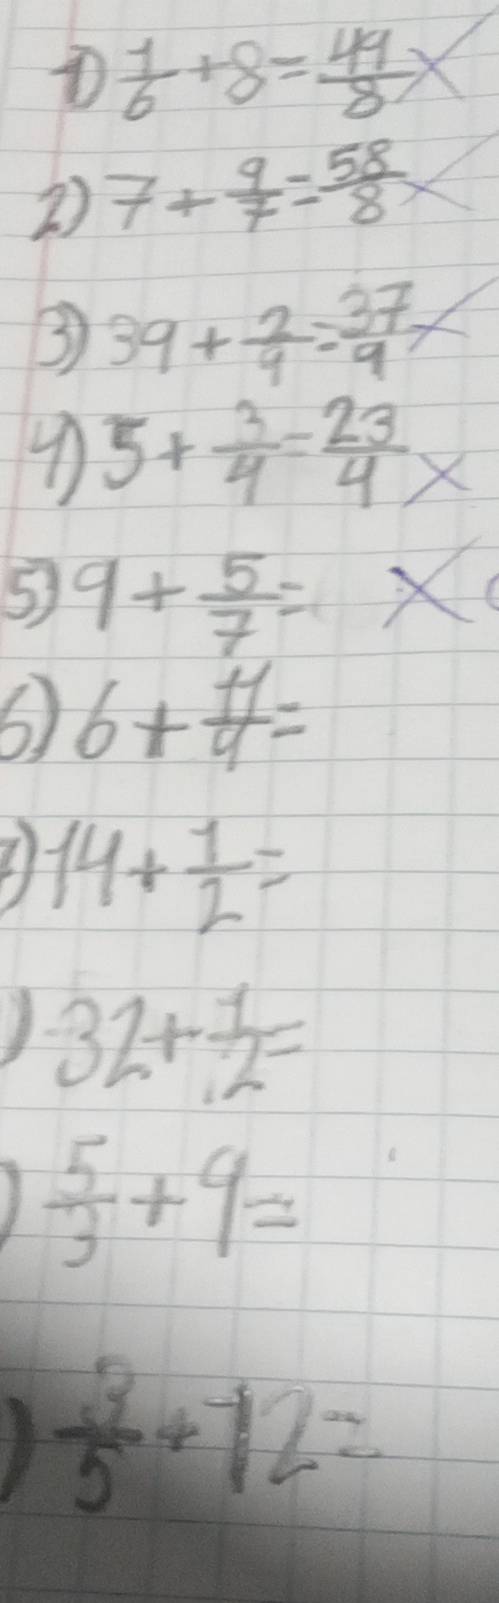 1) 1/6 + 8 = 49/8 X
2) 7 + 9/7 = 58/8 X
3) 39 + 2/9 = 37/9 X
4) 5 + 3/4 = 23/4 X
5) 9 + 5/7 = X
6) 6 + 11/9 =
7) 14 + 1/2 =
) 32 + 1/2 =
) 5/3 + 9 =
) 3/5 + 12 =